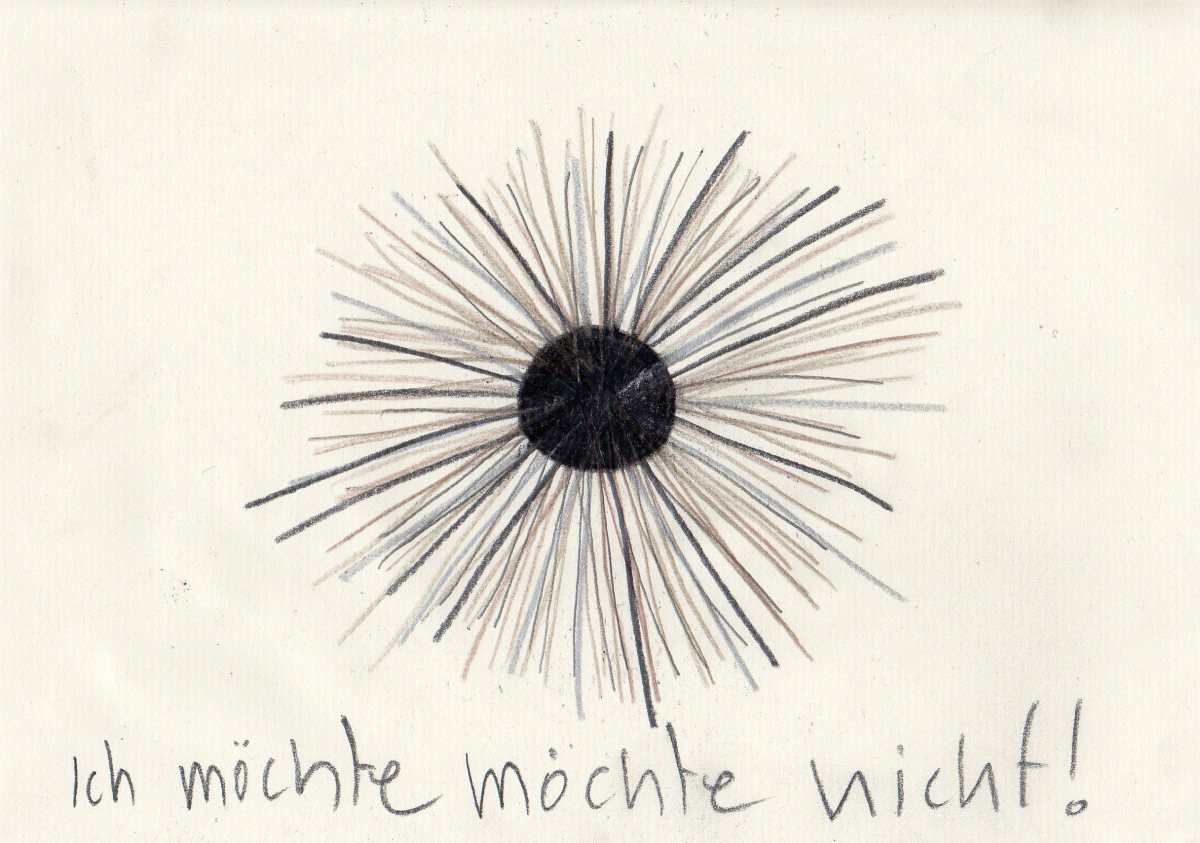 Ich möchte möchte nicht!